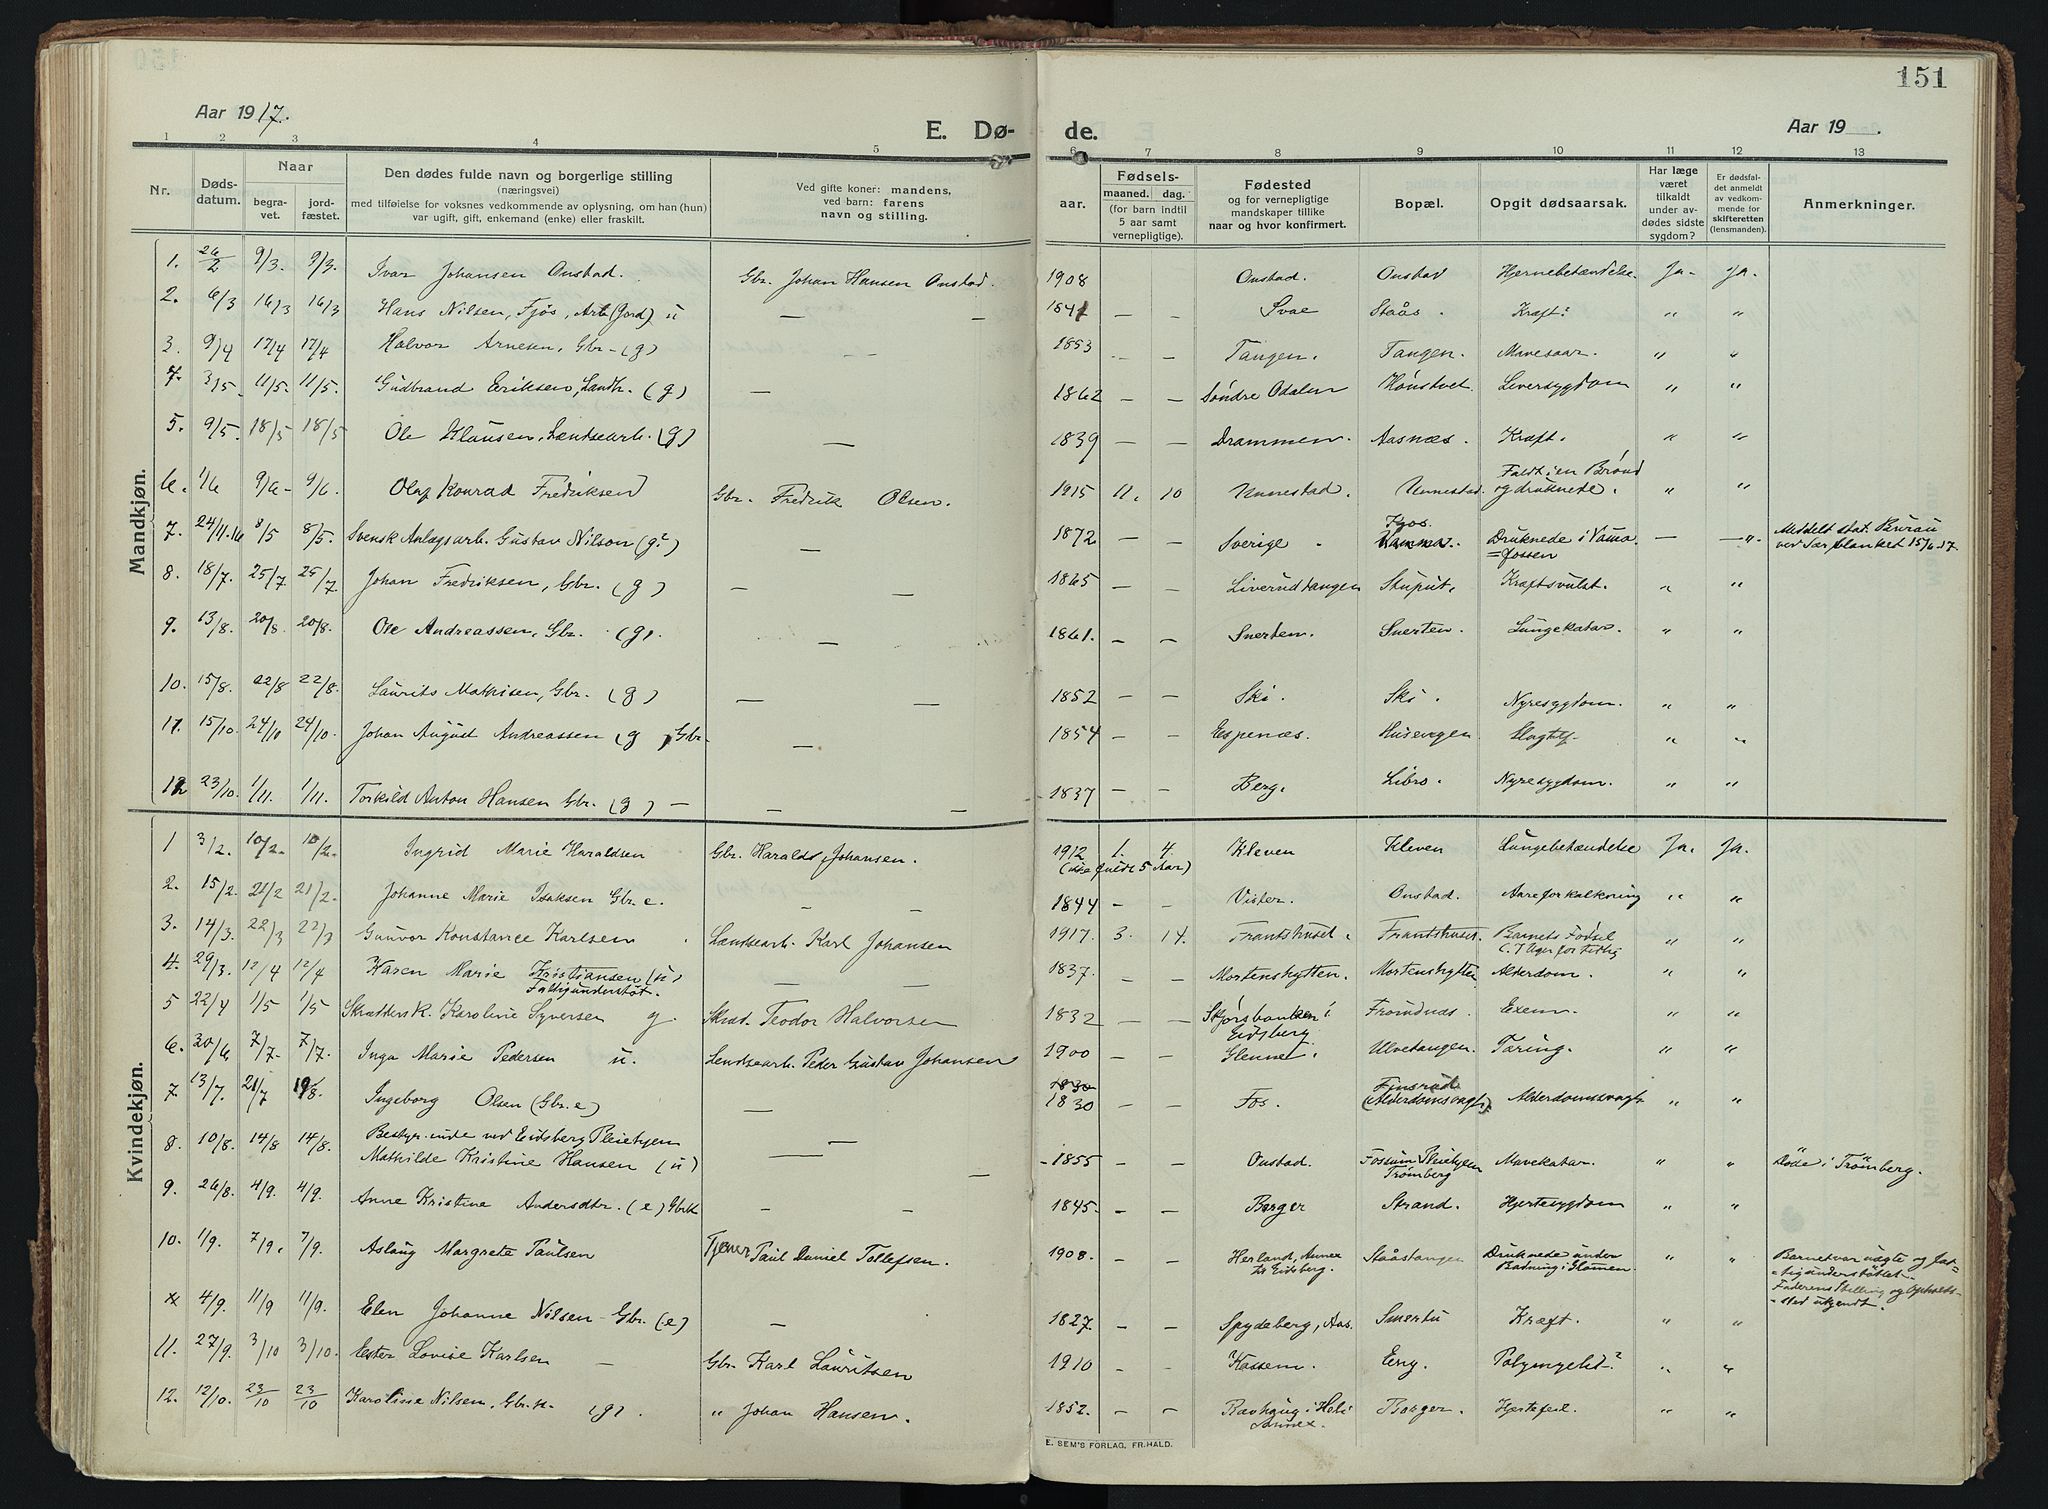 151
Aar 1917.
E. Dø-
de.
Aar 19 .
1 2 3 4 5 6 7 8 9 10 11 12 13
Nr.
Døds-
datum.
Naar
begra-
vet.
jord-
fæstet.
Den dødes fulde navn og borgerlige stilling
(næringsvei)
med tilføielse for voksnes vedkommende av oplysning, om han (hun)
var ugift, gift, enkemand (enke) eller fraskilt.
Ved gifte koner: mandens,
ved barn: farens
navn og stilling.
aar.
Fødsels-
maaned. dag.
(for barn indtil
5 aar samt
vernepligtige).
Fødested
og for vernepligtige
mandskaper tillike
naar og hvor konfirmert.
Bopæl.
Opgit dødsaarsak.
Har læge
været
tilkaldt
under av-
dødes sidste
sygdom?
Er dødsfal-
det anmeldt
av vedkom-
mende for
skifteretten
(lensmanden).
Anmerkninger.
Mandkjøn.
1. 26/2 9/3. 9/3. Ivar Johansen Onstad. Gbr. Johan Hansen Onstad. 1908 Onstad. Onstad Hjernebetændelse Ja- Ja.
2. 6/3 16/3 16/3 Hans Nilsen, Fjøs, Arb (Jord) u — — 1841 — — Svae Staås. Kræft. " "
3. 9/4 17/4 17/4 Halvor Arnesen, Gbr- (g) — 1853 — — Tangen. Tangen. Mavesaar. " "
4. 3/5. 11/5. 11/5. Gudbrand Eriksen, Landh. (g) — 1862 — — Søndre Odalen Hønstvet. Leversygdom " "
5. 9/5. 18/5 18/5 Ole Klausen, Lændsearb. (g) — 1839 — — Drammen. Aasnæs. Kræft. " "
6. 1/6 9/6- 9/6. Olaf Konrad Fredriksen Gbr. Fredrik Olsen. 1915 11. 10 Unnestad. Unnestad. Faldt i en Brønd
og druknede. " "
7. 24/11.16 8/5 8/5. Svensk Anlægsarb. Gustav Nilson (g?) — 1872 — — Sverige. Fos. Druknede i Vama
=fossen — — " Meddelt stat. Bureau
ved Særblanket 15/6.17.
8. 18/7. 25/7 25/7 Johan Fredriksen, Gbr. (g) — — 1865 — — Liverudtangen Stuput. Kræftsvulst. " "
9. 13/8. 20/8. 20/8. Ole Andreassen, Gbr. (g). — 1861. — — Snerten. Snerten. Lungekatar. " "
10. 15/8. 22/8 22/8. Laurits Mathisen, Gbr. (g) — — 1852 — — Ski. Ski. Nyresygdom. " "
11. 15/10. 24/10 24/10. Johan August Andreassen (g) Gbr- — 1854 — — Espenæs. Husevegen Slagtilf. " "
12 23/10. 1/11. 1/11. Torkild Anton Hansen Gbr. (g) — — — 1837 — — Berg. Libro. Nyresygdom. " "
Kvindekjøn.
1 3/2. 10/2. 10/2. Ingrid Marie Haraldsen Gbr. Harald Johansen. 1912 1. 4. Kleven Kleven Lungebetændelse Ja. Ja.
(ikke fuldt 5 Aar)
2. 15/2. 21/2 21/2. Johanne Marie Isaksen Gbr. e. — — 1844 — — Vister. Onstad. Aareforkalkning " "
3. 14/3. 22/3 22/3 Gunvor Konstance Karlsen Lændsearb. Karl Johansen 1917. 3. 14. Frantshuset. Frantshuset. Barnets Fødsel
(. 7 Uger for tidlig " "
4. 29/3. 12/4 12/4 Karen Marie Kristiansen (u)
Fattigunderstøt. — — 1837. — — Mortenshytten. Mortenshytten Alderdom. " "
5 22/4 1/5 1/5 Skrædders K. Karoline Syversen g. Skræd. Teodor Halvorsen 1832 — — Skjørsbanken i
Eidsberg Frondnæs. Exem. " "
6. 30/6 7/7. 7/7. Inga Marie Pedersen u. Lændsearb. Peder Gustav Johansen 1900 — — Glennet. Ulvetangen. Tæring. " "
7. 13/7. 21/7 19/8. Ingeborg Olsen (Gbr. e) — 1830
1830 — — Fos. Finsrud
(Alderdomssvagh. Alderdomssvagh. " "
8. 10/8. 14/8 14/8. Bestyrerinde ved Eidsberg Pleiehjem
Mathilde Kristine Hansen (u) — — 1855 — — Onstad. Fossum Pleiehjem
Trømborg Mavekatar. " " Døde i Trømberg.
9. 26/8. 4/9. 4/9. Anne Kristine Andersdtr. (e) Gbrk — — 1845- — — Berger Strand. Hjertesygdom " "
10. 1/9. 7/9. 7/9. Aslaug Margrete Paulsen Tjener Paul Daniel Tollefsen. 1908. — — Herland, Annex
til Eidsberg. Staåstangen Druknede under
Badning i Glommen. " " Barnet var uægte og fat-
=tigunderstøttet.
Faderens Stilling og Opholds-
=sted ukjendt.
4/9. 11/9 11/9. Elen Johanne Nilsen Gbr. (e) — 1827. — — Spydeberg, Aas. Smertu Kræft. " "
11. 27/9. 3/10 3/10. Ester Lovise Karlsen — Gbr. Karl Lauritsen 1910 — — Kossem. Eng. Polymyelid? " "
12. 12/10. 23/10 23/10 Karoline Nilsen, Gbr. k. (g). " Johan Hansen. 1852. — — Ravhaug i Heli
Annex Borger. Hjertefeil. " "
E. SEM'S FORLAG, FR.HALD.